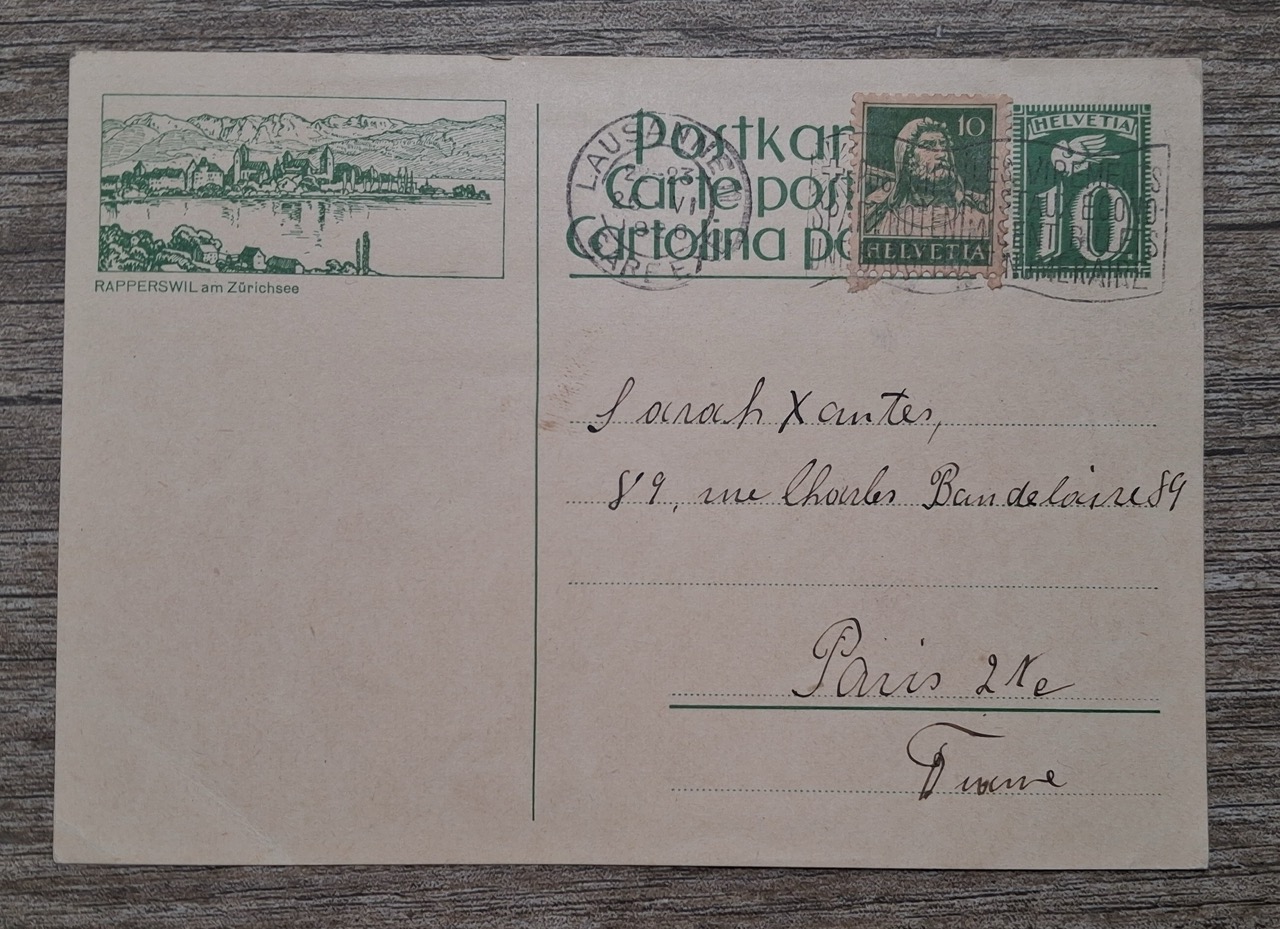 RAPPERSWIL am Zürichsee
Postkar
Carte post
Cartolina po
LAUSANNE
10
HELVETIA
HELVETIA
10
Sarah Xantes,
89, rue Charles Baudelaire 89
Paris
France